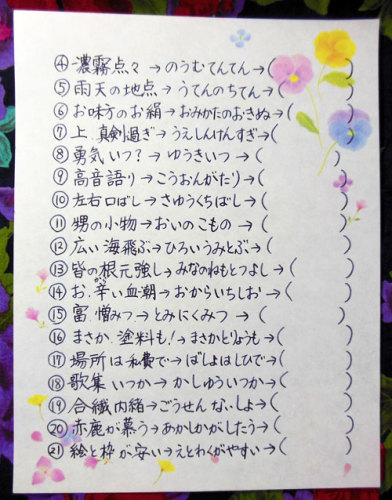 ④濃霧点々→のうむてんてん→(　　)
⑤雨天の地点→うてんのちてん→(　　)
⑥お味方のお絹→おみかたのおきぬ→(　　)
⑦上、真剣過ぎ→うえしんけんすぎ→(　　)
⑧勇気いつ?→ゆうきいつ→(　　)
⑨高音語り→こうおんがたり→(　　)
⑩左右口ばし→さゆうくちばし→(　　)
⑪甥の小物→おいのこもの→(　　)
⑫広い海飛ぶ→ひろいうみとぶ→(　　)
⑬皆の根元強し→みなのねもとつよし→(　　)
⑭お、辛い血潮→おからいちしお→(　　)
⑮富、憎みつ→とみにくみつ→(　　)
⑯まさか、塗料も!→まさかとりょうも→(　　)
⑰場所は私費で→ばしょはしひで→(　　)
⑱歌集いつか→かしゅういつか→(　　)
⑲合繊内緒→ごうせんないしょ→(　　)
⑳赤鹿が慕う→あかしかがしたう→(　　)
㉑絵と枠が安い→えとわくがやすい→(　　)